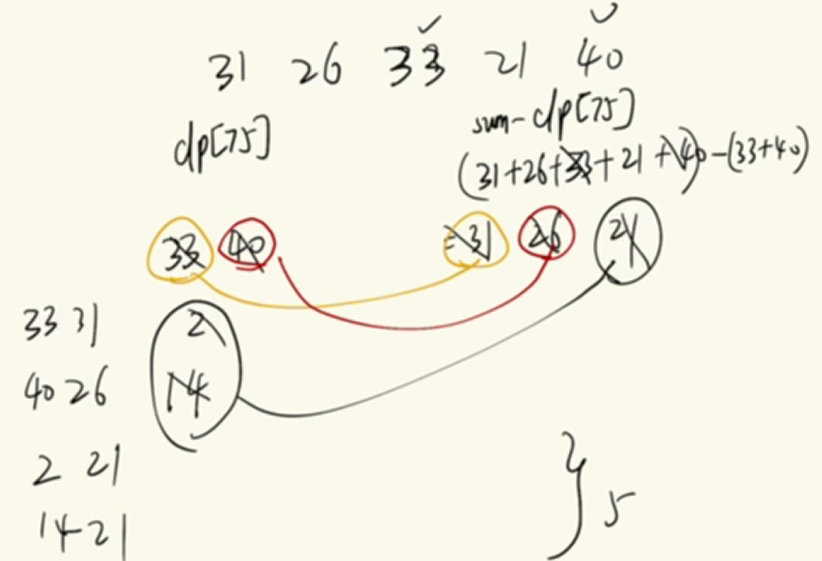 31 26 33 21 40
dp[75] sum-dp[75]
(31+26+33+21+40)-(33+40)
33 40 =31 26 21
33 31 2
40 26 14
2 21
14 21
} 5